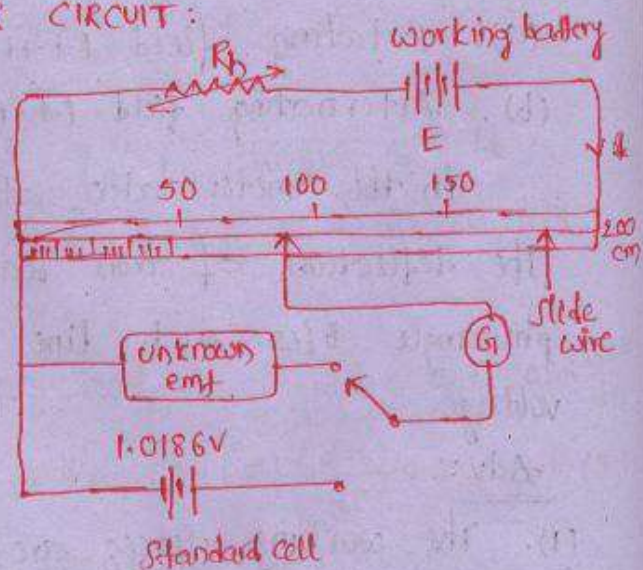 CIRCUIT:
working battery
Rh
E
50 100 150
200
cm
slide
wire
G
unknown
emf
1.0186V
Standard cell